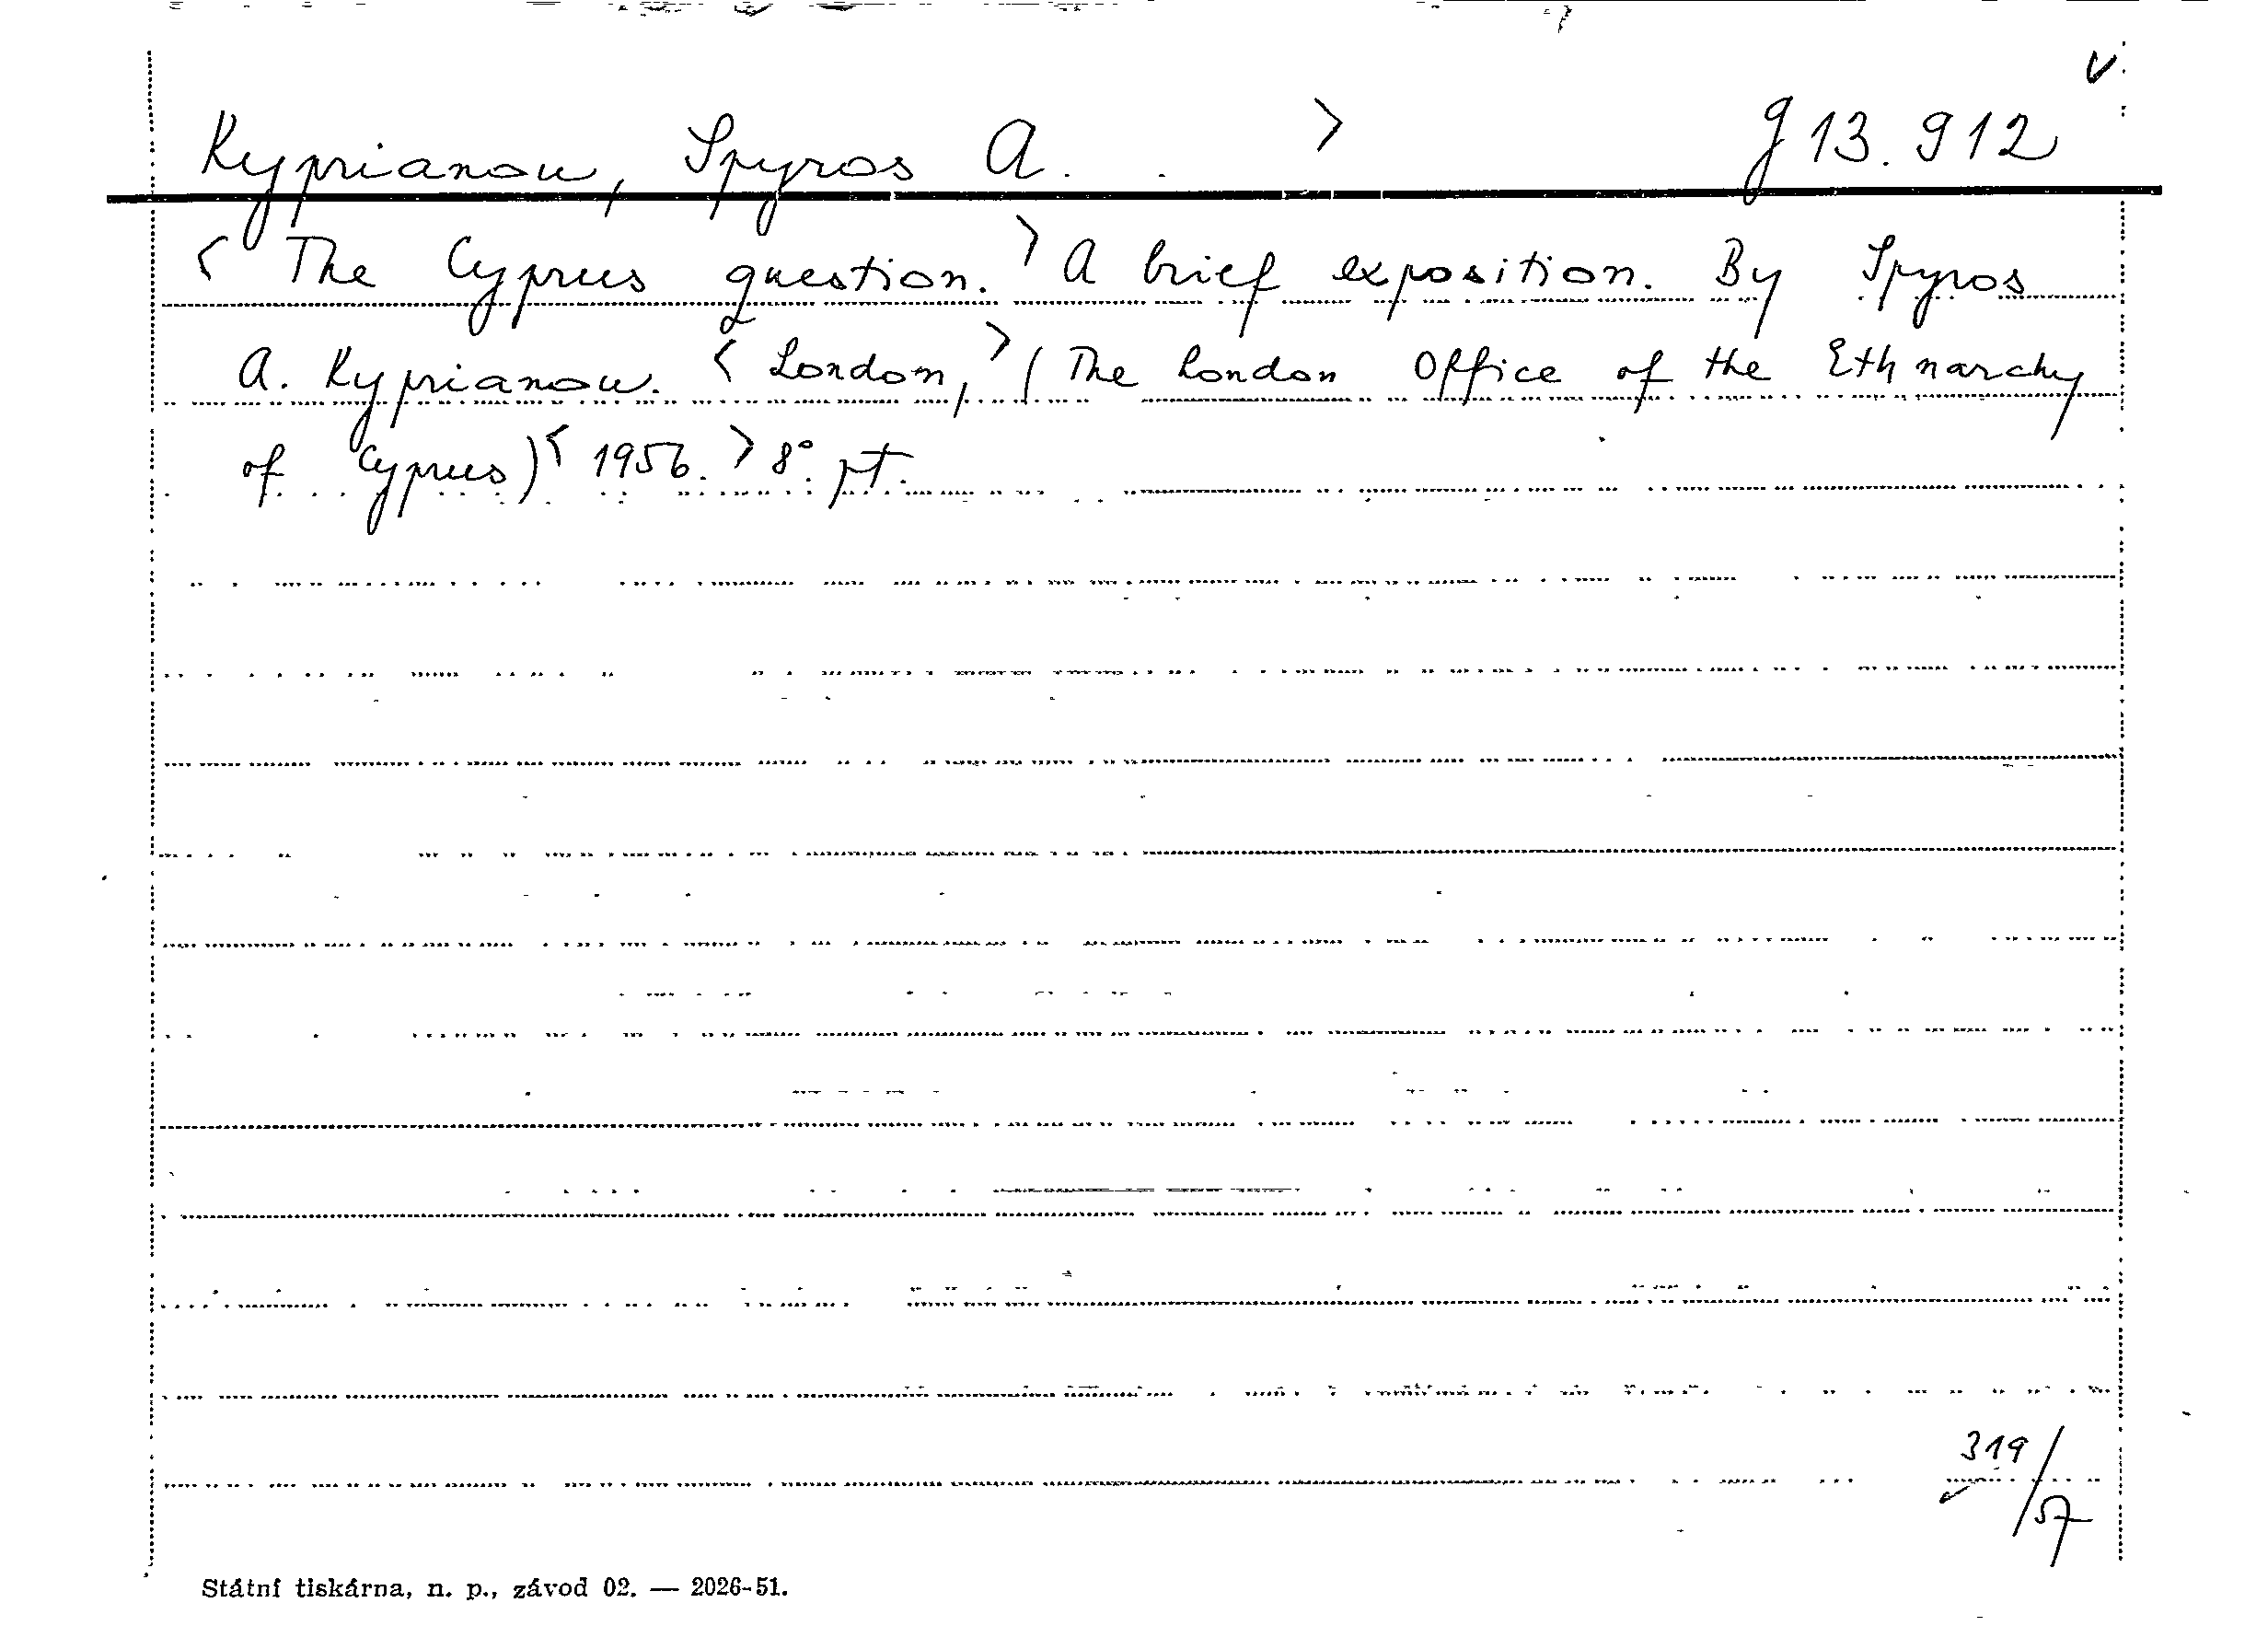 v
Kyprianou, Spyros A. > g 13.912
< The Cyprus question. > A brief exposition. By Spyros
A. Kyprianou. < London, > (The London Office of the Ethnarchy
of Cyprus) < 1956. > 8° pt.
319/57
Státní tiskárna, n. p., závod 02. — 2026-51.